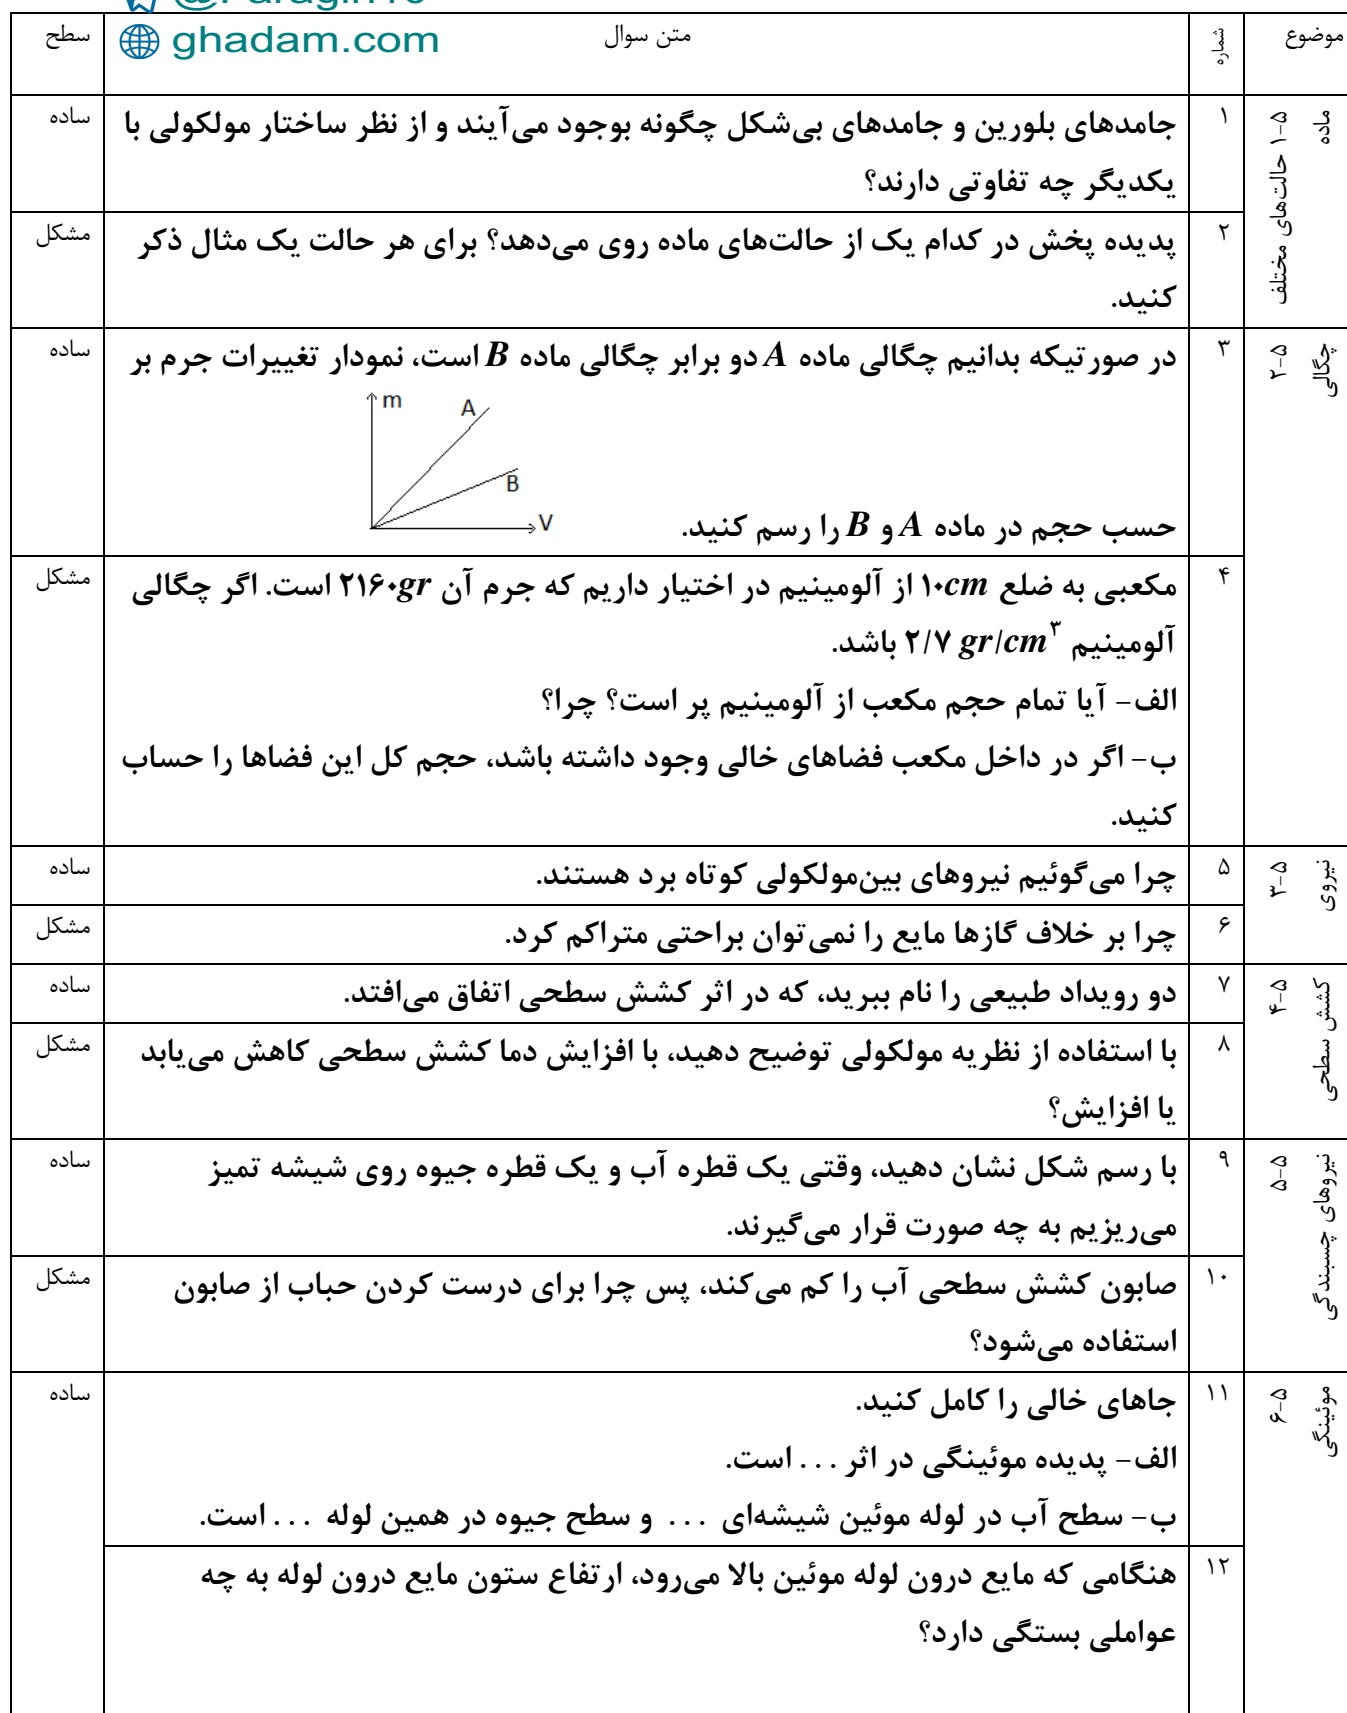 @Paragih10
ghadam.com
موضوع
شماره
متن سوال
سطح
۵-۱ حالت‌های مختلف
ماده
۱
جامدهای بلورین و جامدهای بی‌شکل چگونه بوجود می‌آیند و از نظر ساختار مولکولی با
یکدیگر چه تفاوتی دارند؟
ساده
۲
پدیده پخش در کدام یک از حالت‌های ماده روی می‌دهد؟ برای هر حالت یک مثال ذکر
کنید.
مشکل
۵-۲
چگالی
۳
در صورتیکه بدانیم چگالی ماده A دو برابر چگالی ماده B است، نمودار تغییرات جرم بر
ساده
m
A
B
V
حسب حجم در ماده A و B را رسم کنید.
۴
مکعبی به ضلع ۱۰cm از آلومینیم در اختیار داریم که جرم آن ۲۱۶۰gr است. اگر چگالی
آلومینیم ۲/۷ gr/cm۳ باشد.
الف- آیا تمام حجم مکعب از آلومینیم پر است؟ چرا؟
ب- اگر در داخل مکعب فضاهای خالی وجود داشته باشد، حجم کل این فضاها را حساب
کنید.
مشکل
۵-۳
نیروی
۵
چرا می‌گوئیم نیروهای بین‌مولکولی کوتاه برد هستند.
ساده
۶
چرا بر خلاف گازها مایع را نمی‌توان براحتی متراکم کرد.
مشکل
۵-۴
کشش سطحی
۷
دو رویداد طبیعی را نام ببرید، که در اثر کشش سطحی اتفاق می‌افتد.
ساده
۸
با استفاده از نظریه مولکولی توضیح دهید، با افزایش دما کشش سطحی کاهش می‌یابد
یا افزایش؟
مشکل
۵-۵
نیروهای چسبندگی
۹
با رسم شکل نشان دهید، وقتی یک قطره آب و یک قطره جیوه روی شیشه تمیز
می‌ریزیم به چه صورت قرار می‌گیرند.
ساده
۱۰
صابون کشش سطحی آب را کم می‌کند، پس چرا برای درست کردن حباب از صابون
استفاده می‌شود؟
مشکل
۵-۶
موئینگی
۱۱
جاهای خالی را کامل کنید.
الف- پدیده موئینگی در اثر ... است.
ب- سطح آب در لوله موئین شیشه‌ای ... و سطح جیوه در همین لوله ... است.
ساده
۱۲
هنگامی که مایع درون لوله موئین بالا می‌رود، ارتفاع ستون مایع درون لوله به چه
عواملی بستگی دارد؟